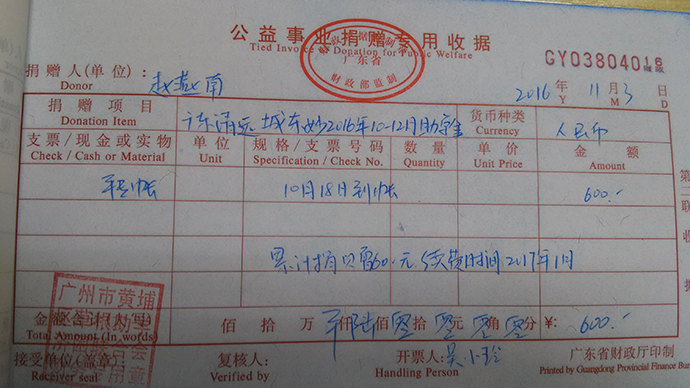 公益事业捐赠专用收据
Tied Invoice of Donation for Public Welfare
广东省
财政部监制
GY03804016
捐赠人(单位): 赵燕南
Donor
2016年 11月 3日
Y M D
捐赠项目 广东清远 2016年10-12月助 货币种类 人民币
Donation Item Currency
支票/现金或实物 单位 规格/支票号码 数量 单价 金额
Check / Cash or Material Unit Specification / Check No. Quantity Unit Price Amount
10月18日到帐 600.-
累计捐 元 续费时间2017年1月
广州市黄埔
金额合计(大写) 佰 拾 万 仟陆佰零拾零元零角零分 ¥: 600.-
Total Amount (In words)
接受单位(盖章): 复核人: 开票人: 吴小玲 广东省财政厅印制
Receiver seal Verified by Handling Person Printed by Guangdong Provincial Finance Bu
第
联
收
据